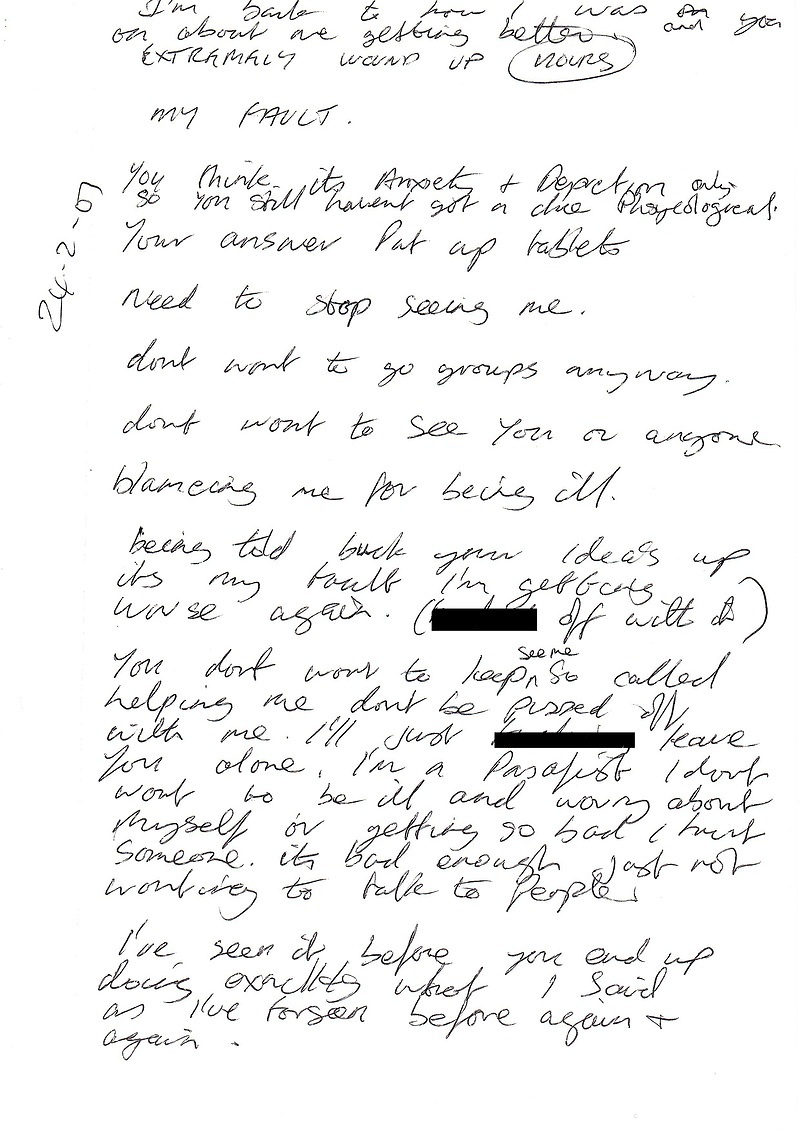 I'm back to how I was on
on about me getting better. and you
EXTRAMALY WOUND UP HOURS
MY FAULT.
24-2-07
You think its Anxiety + Depretion only
so you still havent got a clue Phsycological.
Your answer Put up tablets
Need to stop seeing me.
dont want to go groups anyway.
dont want to see You or anyone
blameing me for being ill.
being told buck your ideas up
its my fault I'm getting
worse again. ( off with it)
You dont want to keep see me So called
helping me dont be pissed off
with me. I'll just leave
you alone. I'm a Pasafist I dont
want to be ill and worry about
myself or getting so bad I hurt
someone. its bad enough just not
wanting to talk to People.
I've seen it before you end up
doing exactly what I said
as I've forseen before again +
again.